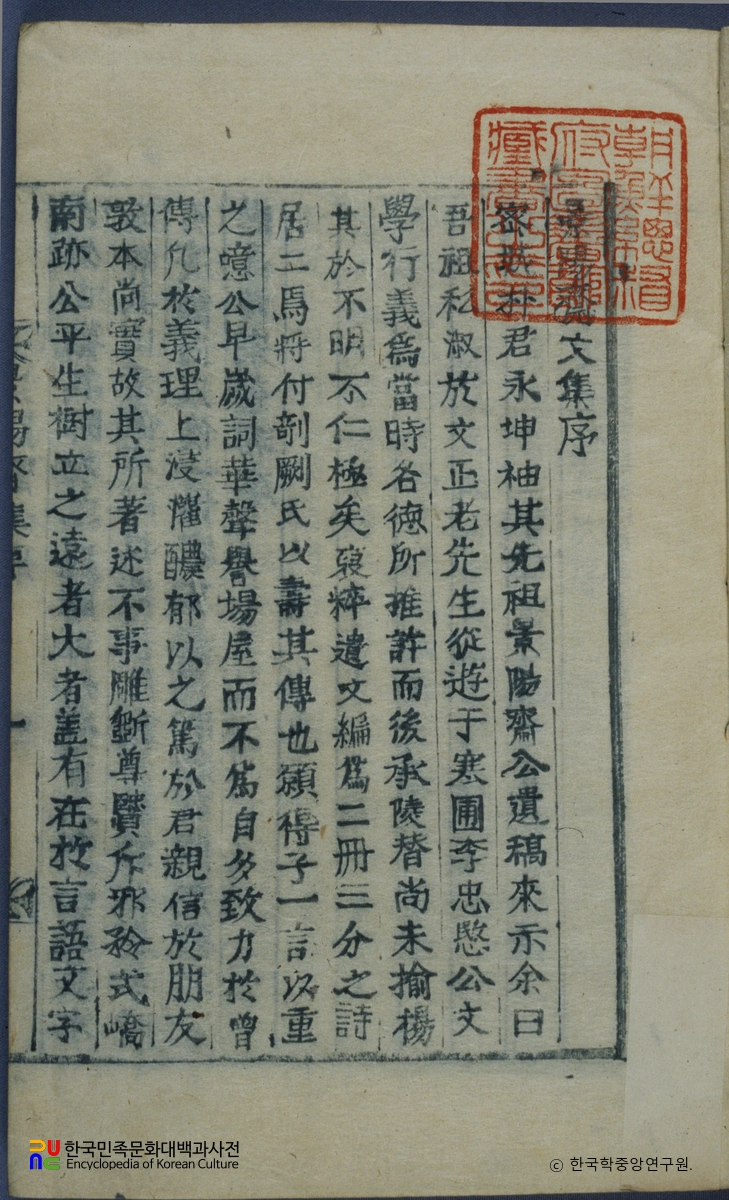 景陽齋文集序
密城朴君永坤袖其先祖景陽齋公遺稿來示余曰
吾祖私淑於文正老先生從遊于寒圃李忠愍公文
學行義爲當時名德所推許而後承陵替尚未揄楊
其於不明不仁極矣裒粹遺文編爲二冊三分之詩
居二焉將付剞劂氏以壽其傳也願得子一言以重
之噫公早歲詞華聲譽場屋而不爲自多致力於曾
傳凡於義理上浸灌醲郁以之篤於君親信於朋友
敦本尚實故其所著述不事雕斲尊賢斥邪矜式嶠
南跡公平生樹立之遠者大者盖有在於言語文字
景陽齋集序
一
朝鮮總督
府圖書
藏書之印
한국민족문화대백과사전
Encyclopedia of Korean Culture
ⓒ 한국학중앙연구원.